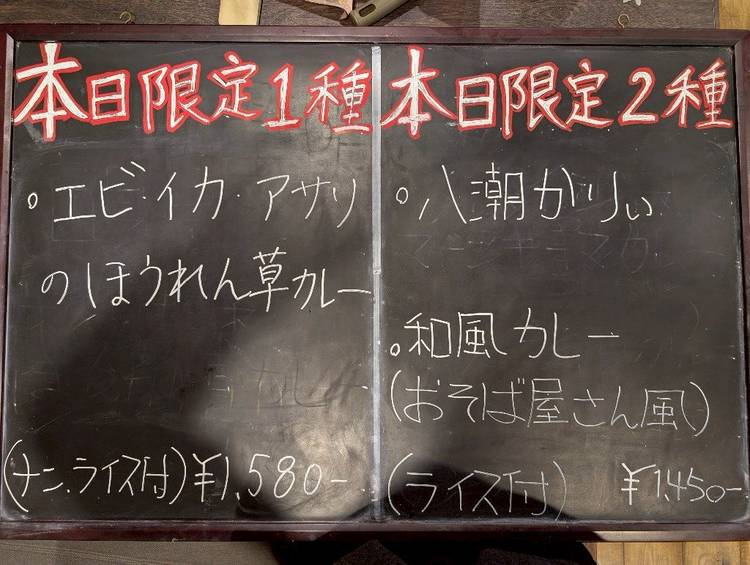 本日限定1種
。エビ・イカ・アサリ
のほうれん草カレー
(ナン.ライス付)¥1,580-
本日限定2種
。八潮かりぃ
。和風カレー
(おそば屋さん風)
(ライス付) ¥1,450-